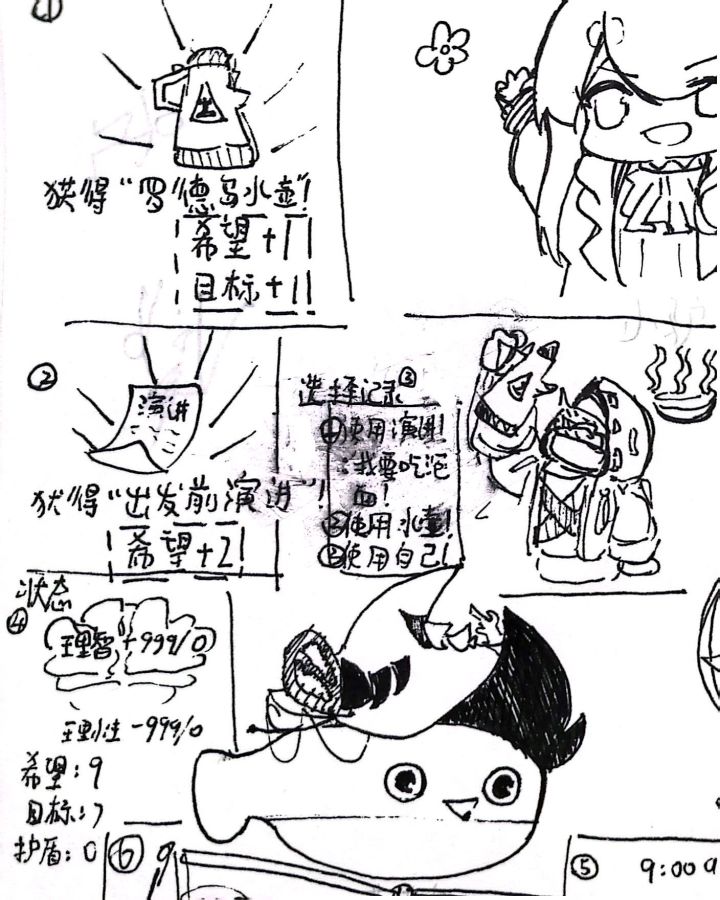 ①
获得“罗德岛水壶”!
希望+1!
目标+1!
②
演讲
获得“出发前演讲”!
希望+2!
选择记录③
①使用演讲!
:我要吃泡
面!
②使用水壶!
③使用自己!
状态
④
理智+999/0
理性-999/0
希望:9
目标:7
护盾:0
⑥
⑤ 9:00